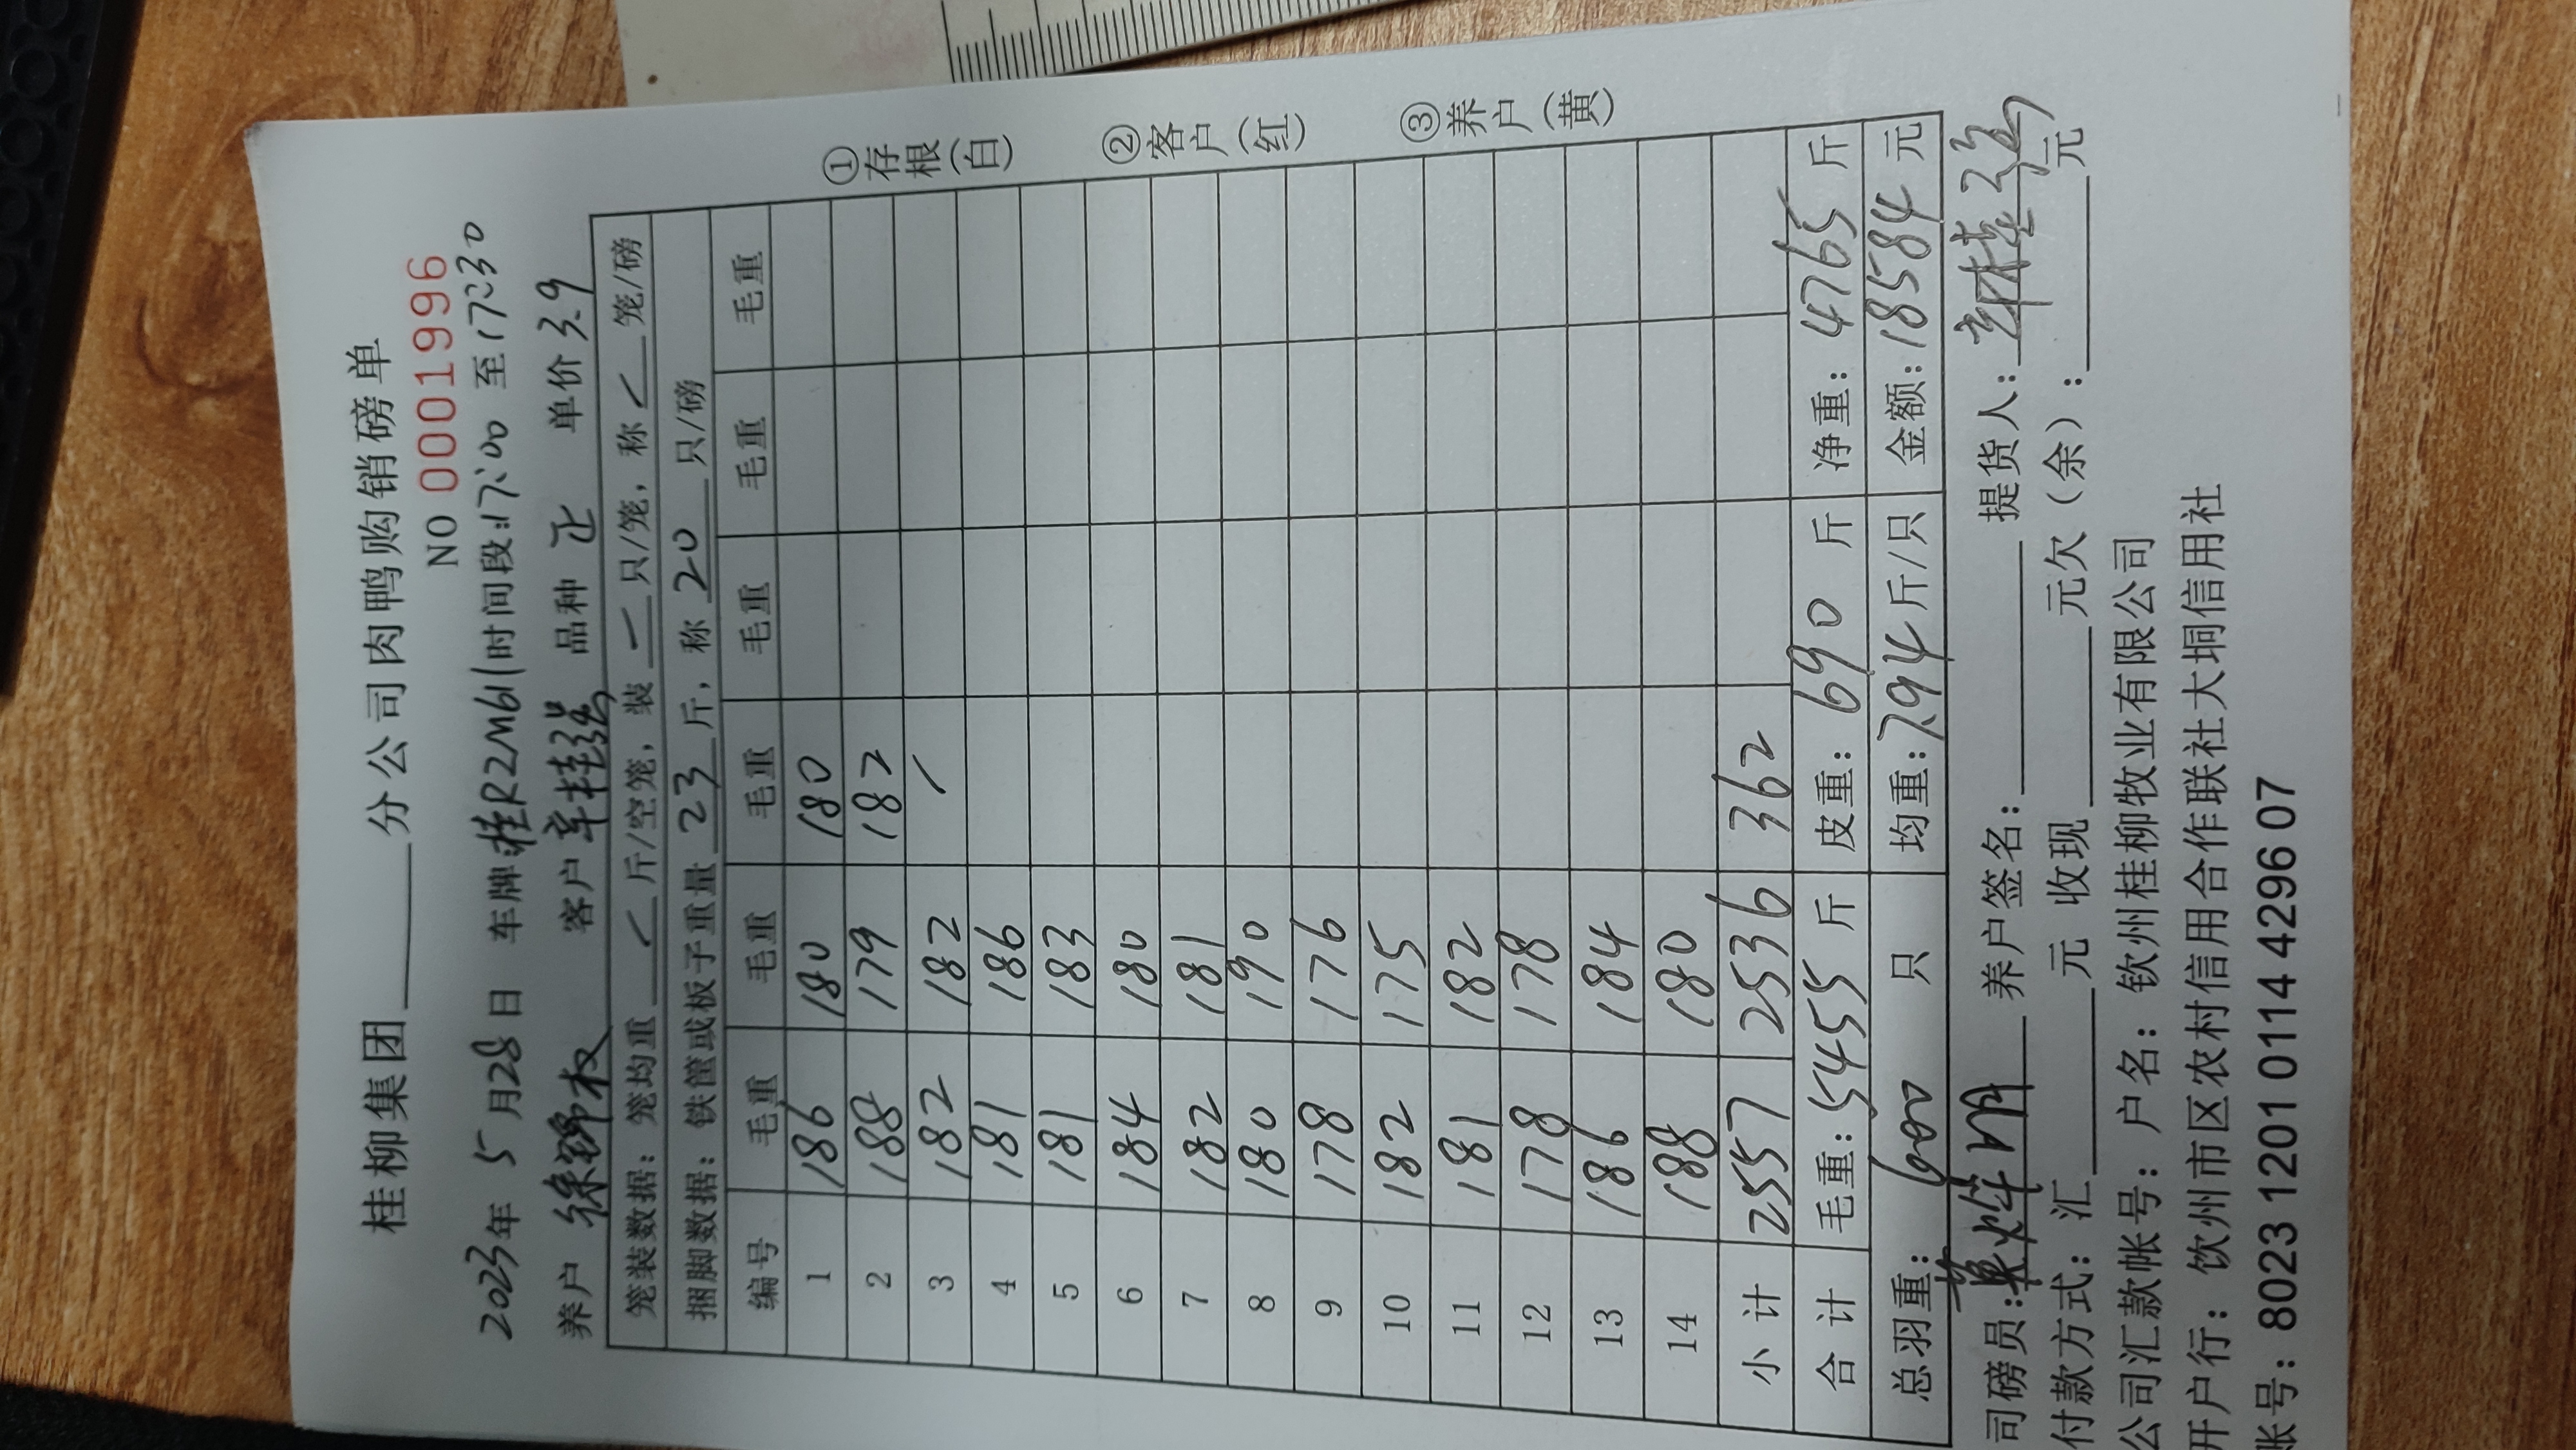 桂柳集团______分公司肉鸭购销磅单
NO 0001996
2023年 5 月28日 车牌桂R2M61(时间段:17:00 至17:30
养户 徐锦权 客户 辛桂强 品种 正 单价 3.9
笼装数据：笼均重 / 斤/空笼，装 / 只/笼，称 / 笼/磅
捆脚数据：铁筐或板子重量 23 斤，称 20 只/磅
编号 毛重 毛重 毛重 毛重 毛重 毛重
1 186 180 180
2 188 179 182
3 182 182 /
4 181 186
5 181 183
6 184 180
7 182 181
8 180 190
9 178 176
10 182 175
11 181 182
12 178 178
13 186 184
14 188 180
小计 2557 2536 362
合计 毛重：5455 斤 皮重：690 斤 净重：4765 斤
总羽重：600 只 均重：7.94 斤/只 金额：18584 元
司磅员： 养户签名：______ 提货人：
付款方式：汇______元 收现______元欠（余）：______元
公司汇款帐号：户名：钦州桂柳牧业有限公司
开户行：钦州市区农村信用合作联社大垌信用社
账号：8023 1201 0114 4296 07
①存根(白)
②客户(红)
③养户(黄)